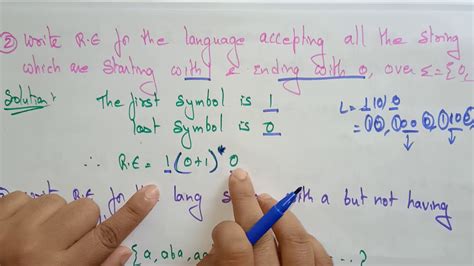 ② Write R.E for the language accepting all the string
which are starting with & ending with 0, over Σ={0,
Solution:
The first symbol is 1
last symbol is 0
L = 1 (0) 0
∴ R.E = 1 (0+1)* 0
for the lang with a but not having
{a, aba,